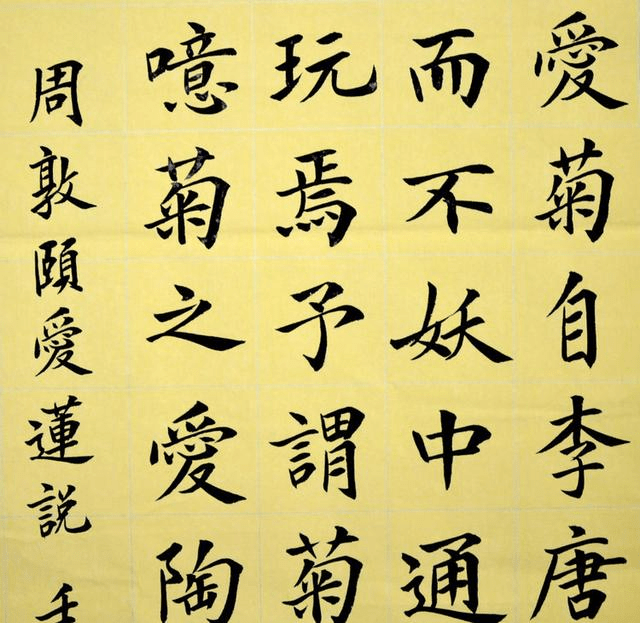 愛菊自李唐
而不妖中通
玩焉予謂菊
噫菊之愛陶
周敦頤愛蓮說